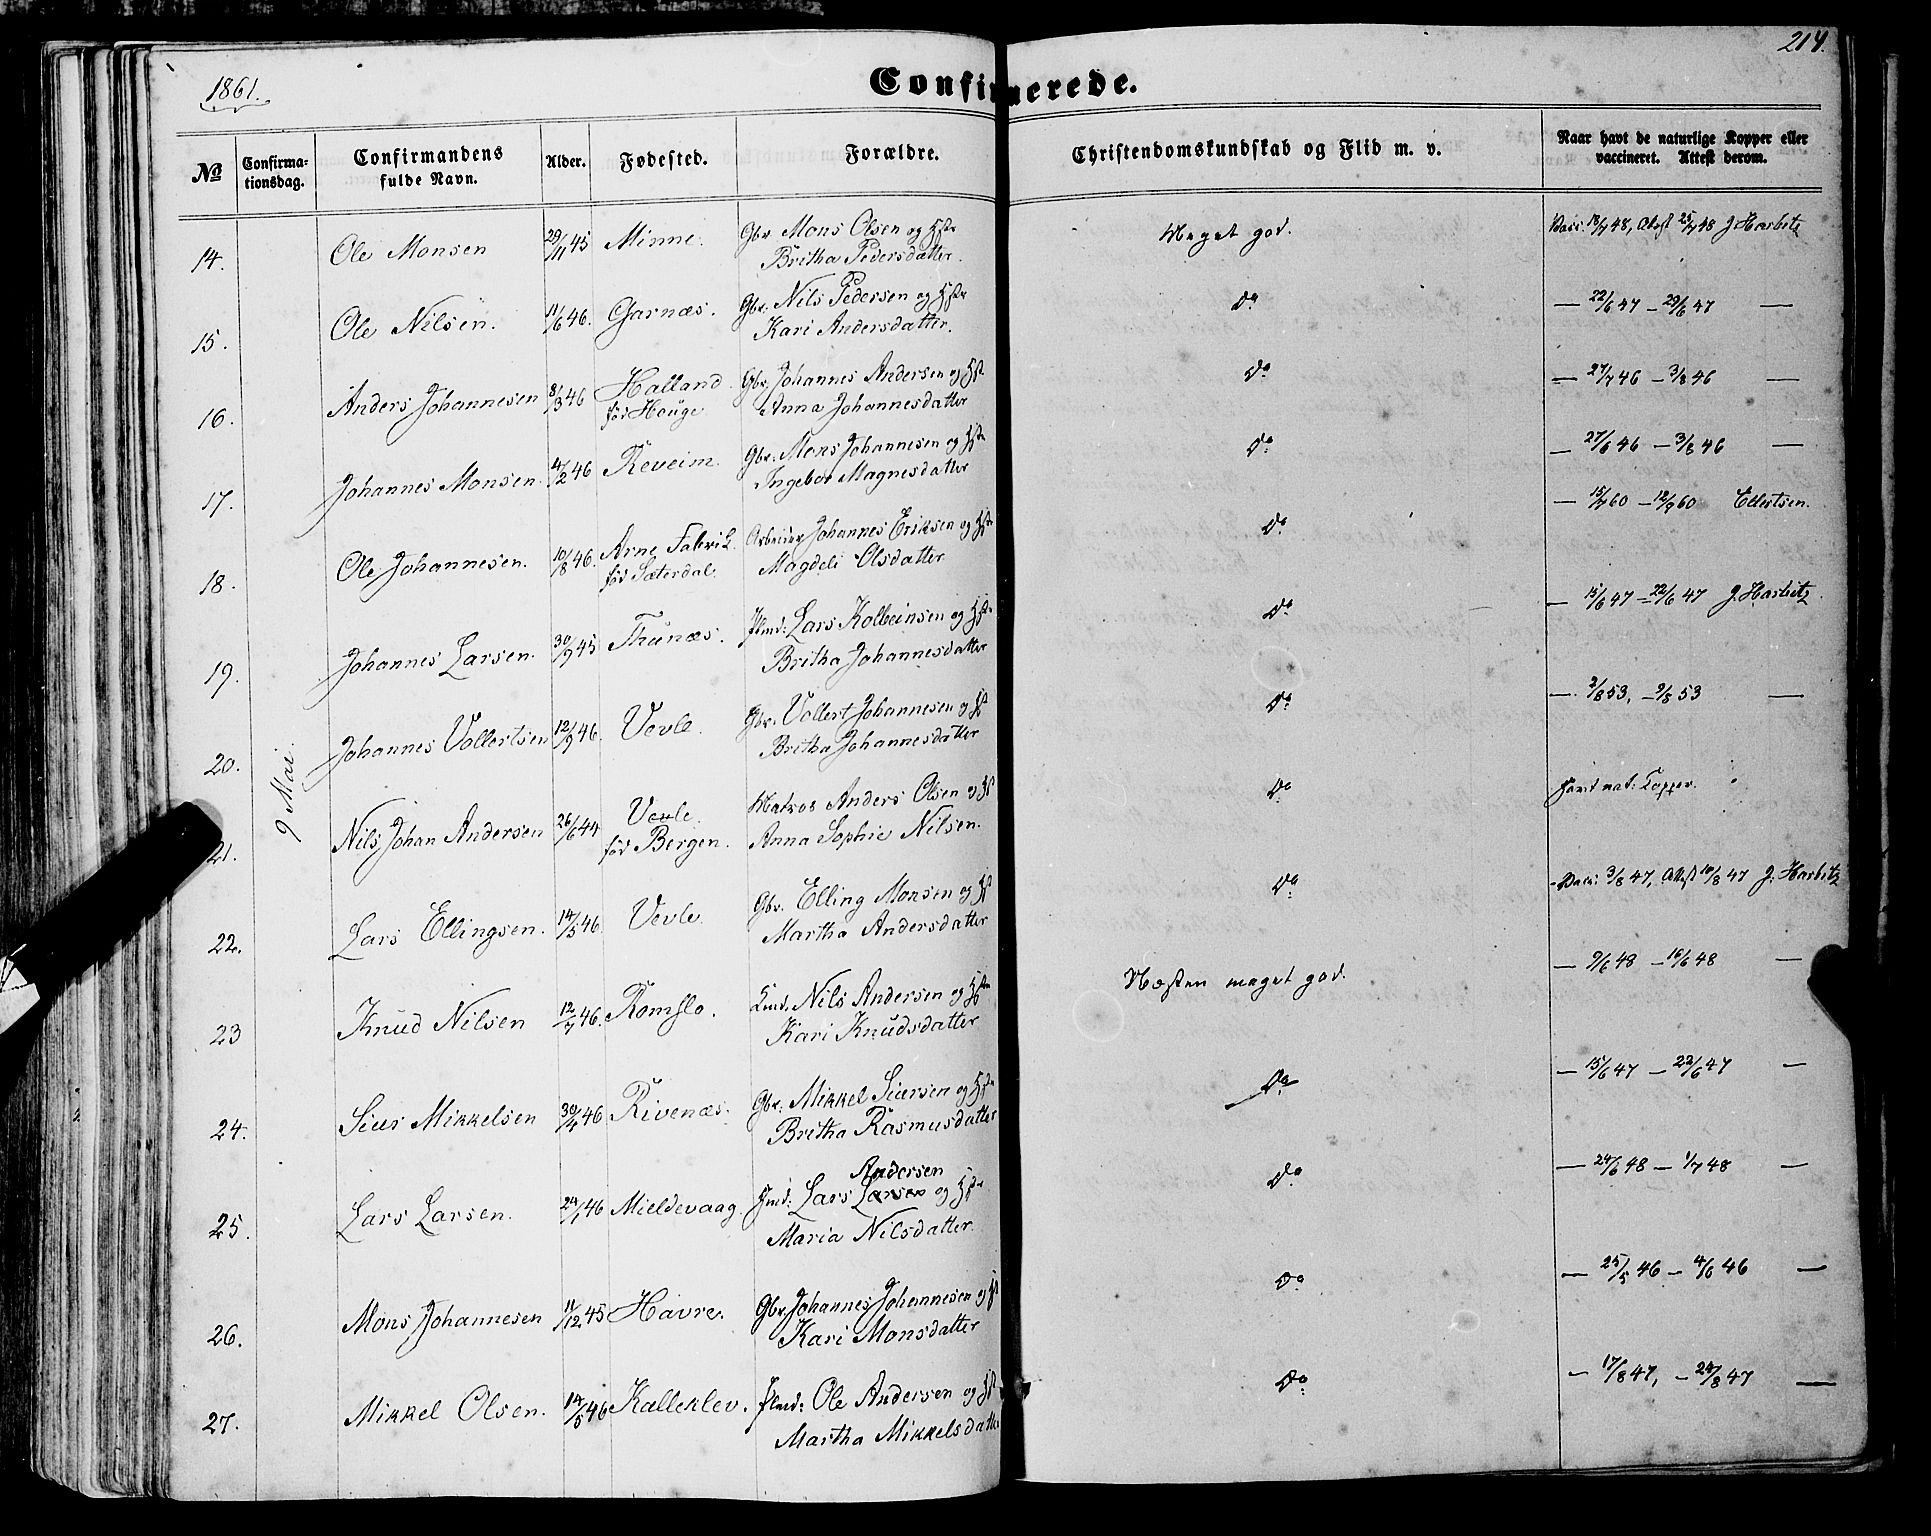 1861.
Confirmerede.
214.
No
Confirmationsdag.
Confirmandens fulde Navn.
Alder.
Fødested.
Forældre.
Christendomskundskab og Flid m. v.
Naar havt de naturlige Kopper eller vaccineret. Attest derom.
9 Mai.
14. Ole Monsen 29/11 45 Minne. Gbr. Mons Olsen og Hstr Meget god. Vacc. 13/7 48, Attest 25/7 48 J. Harbitz
Britha Pedersdatter.
15. Ole Nilsen. 11/6 46. Garnæs. Gbr. Nils Pedersen og Hstr Do — 22/6 47 — 29/6 47 —
Kari Andersdatter.
16. Anders Johannesen 8/3 46 Halland Gbr. Johannes Andersen og Hst Do — 27/7 46 — 3/8 46 —
før Houge Anna Johannesdatter
17. Johannes Monsen 4/2 46 Reveim. Gbr. Mons Johannesen og Hst Do — 27/6 46 — 3/8 46 —
Ingebor Magnesdatter
18. Ole Johannesen. 10/8 46. Arne Fabrik. Arbeider Johannes Eriksen og Hst Do — 15/7 60 — 12/9 60 Ellertsen.
før Sæterdal. Magdeli Olsdatter
19. Johannes Larsen. 30/9 45 Thunæs. Hmd: Lars Kolbeinsen og Hst Do — 15/6 47 — 22/6 47 J. Harbitz
Britha Johannesdatter
20. Johannes Vollertsen 12/9 46. Vevle. Gbr. Vollert Johannesen og Hst Do — 2/8 53, — 9/8 53 —
Britha Johannesdatter
21. Nils Johan Andersen 26/6 44 Vevle. Matros Anders Olsen og Hst Do Havt nat: Kopper.
fød Bergen. Anna Sophie Nilsen.
22. Lars Ellingsen. 14/5 46 Vevle. Gbr. Elling Monsen og Hst Do Vacc: 3/8 47, Attest 10/8 47 J. Harbitz
Martha Andersdatter
23 Knud Nilsen 12/7 46. Romslo. Nils Andersen og Hstr Næsten meget god. — 9/6 48 — 16/6 48 —
Kari Knudsdatter
24. Siur Mikkelsen 30/4 46 Rivenæs. Gbr. Mikkel Siursen og Hst Do — 15/6 47 — 22/6 47 —
Britha Rasmusdatter
Andersen
25. Lars Larsen. 24/1 46 Mieldevaag. Hmd: Lars Larsen og Hst Do — 24/6 48 — 1/7 48 —
Maria Nilsdatter.
26. Mons Johannesen 11/12 45 Havre. Gbr Johannes Johannesen og Hst Do — 25/5 46 — 4/6 46 —
Kari Monsdatter
27. Mikkel Olsen. 14/5 46 Kalleklev. Hmd: Ole Andersen og Hst Do — 17/8 47, — 24/8 47 —
Martha Mikkelsdatter